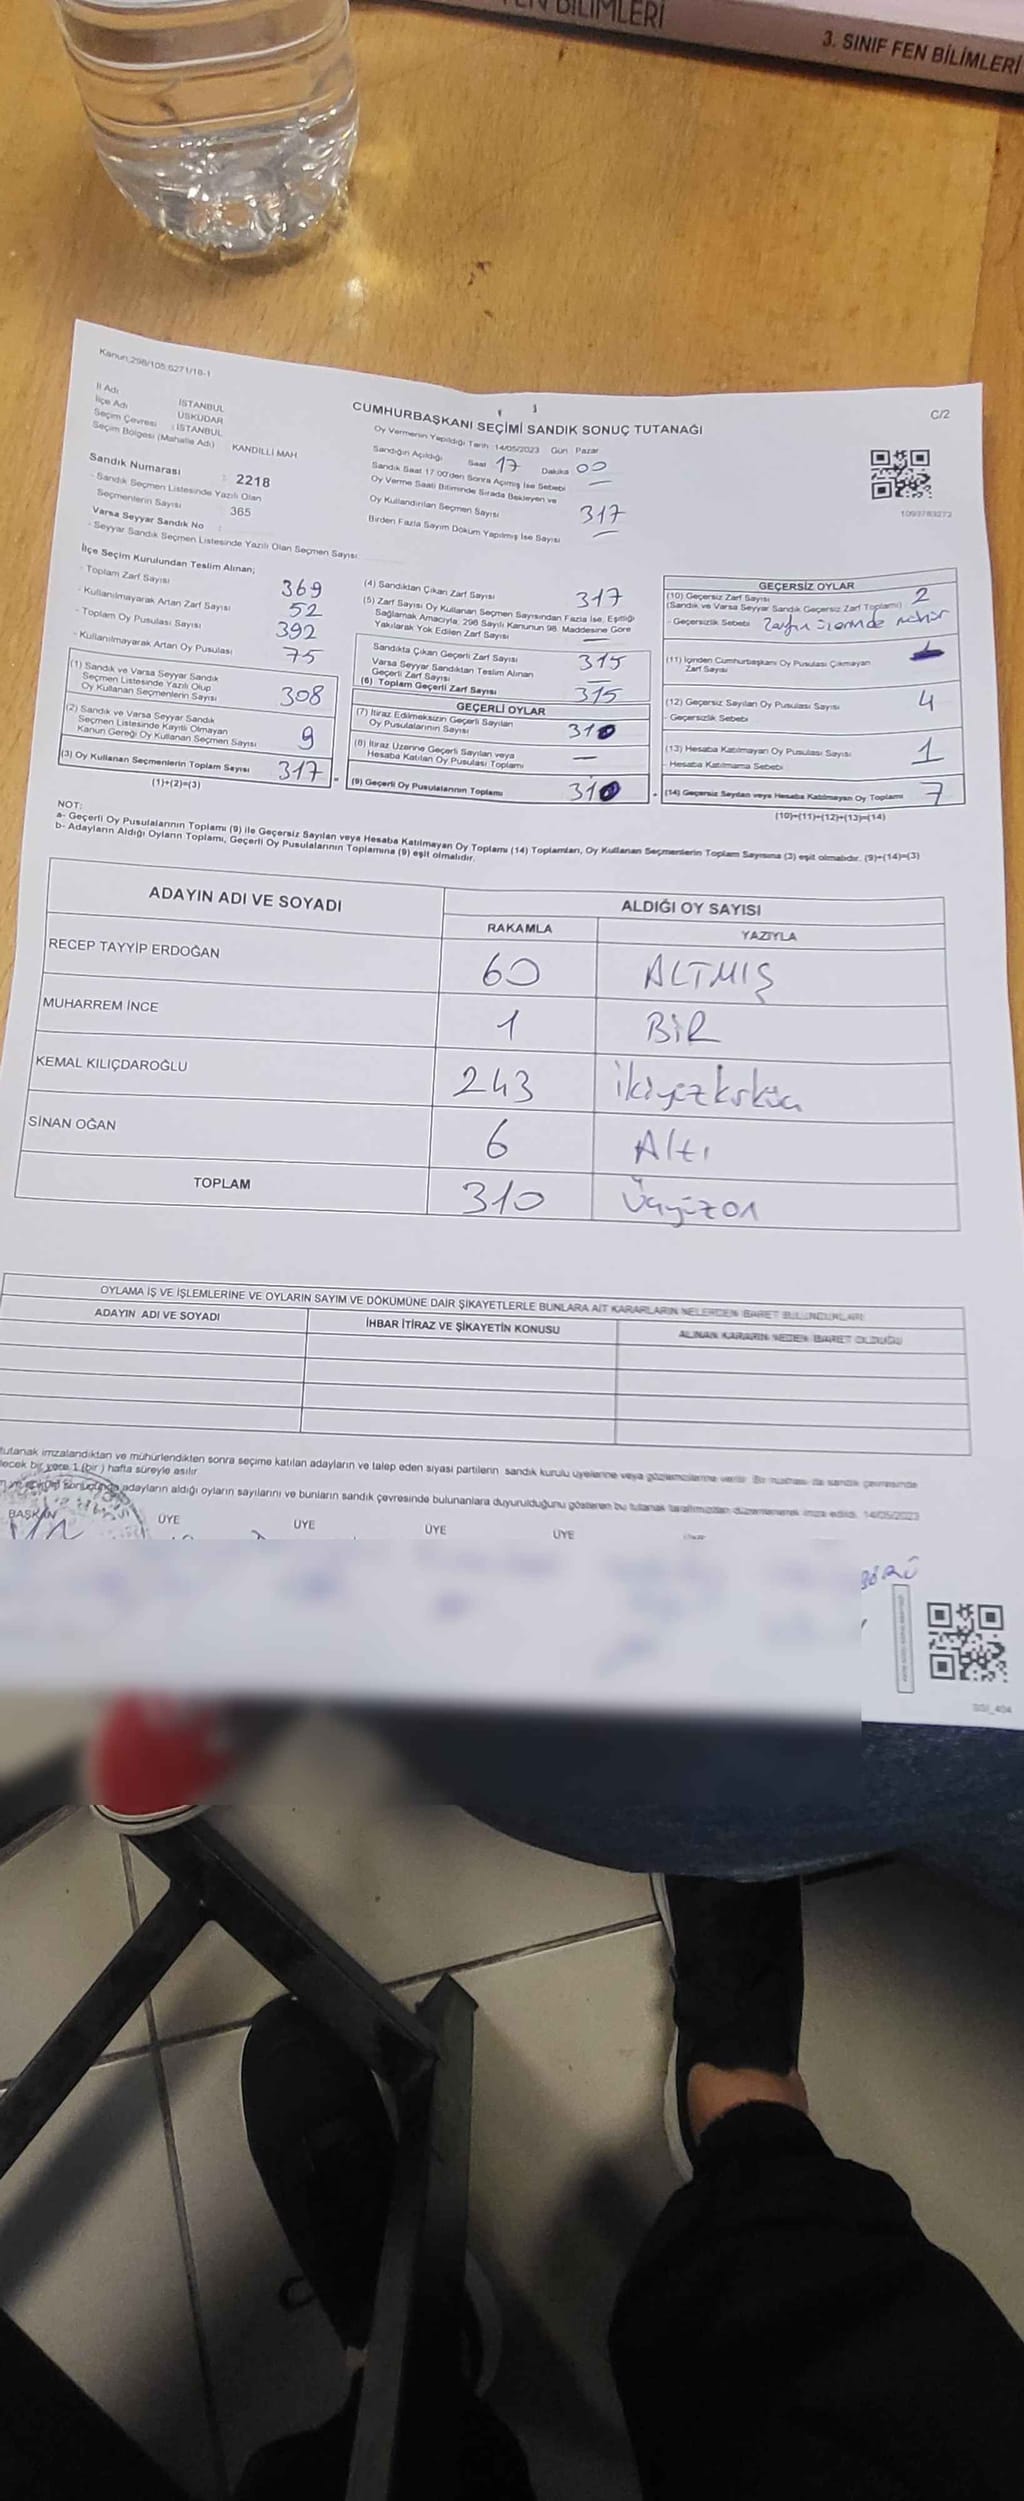 FEN BİLİMLERİ
3. SINIF FEN BİLİMLERİ
Kanun;298/105;6271/18-1
C/2
CUMHURBAŞKANI SEÇİMİ SANDIK SONUÇ TUTANAĞI
İl Adı : İSTANBUL
İlçe Adı : ÜSKÜDAR
Seçim Çevresi : İSTANBUL
Seçim Bölgesi (Mahalle Adı) : KANDİLLİ MAH
Sandık Numarası : 2218
- Sandık Seçmen Listesinde Yazılı Olan
Seçmenlerin Sayısı : 365
Varsa Seyyar Sandık No :
- Seyyar Sandık Seçmen Listesinde Yazılı Olan Seçmen Sayısı:
Oy Vermenin Yapıldığı Tarih :14/05/2023 Gün : Pazar
Sandığın Açıldığı Saat 17 Dakika 00
Sandık Saat 17:00'den Sonra Açılmış İse Sebebi —
Oy Verme Saati Bitiminde Sırada Bekleyen ve
Oy Kullandırılan Seçmen Sayısı 317
Birden Fazla Sayım Döküm Yapılmış İse Sayısı —
1093783272
İlçe Seçim Kurulundan Teslim Alınan;
- Toplam Zarf Sayısı 369
- Kullanılmayarak Artan Zarf Sayısı 52
- Toplam Oy Pusulası Sayısı 392
- Kullanılmayarak Artan Oy Pusulası 75
(1) Sandık ve Varsa Seyyar Sandık
Seçmen Listesinde Yazılı Olup
Oy Kullanan Seçmenlerin Sayısı 308
(2) Sandık ve Varsa Seyyar Sandık
Seçmen Listesinde Kayıtlı Olmayan
Kanun Gereği Oy Kullanan Seçmen Sayısı 9
(3) Oy Kullanan Seçmenlerin Toplam Sayısı 317
(1)+(2)=(3)
(4) Sandıktan Çıkan Zarf Sayısı 317
(5) Zarf Sayısı Oy Kullanan Seçmen Sayısından Fazla İse, Eşitliği
Sağlamak Amacıyla, 298 Sayılı Kanunun 98. Maddesine Göre
Yakılarak Yok Edilen Zarf Sayısı —
Sandıkta Çıkan Geçerli Zarf Sayısı 315
Varsa Seyyar Sandıktan Teslim Alınan
Geçerli Zarf Sayısı —
(6) Toplam Geçerli Zarf Sayısı 315
GEÇERLİ OYLAR
(7) İtiraz Edilmeksizin Geçerli Sayılan
Oy Pusulalarının Sayısı 310
(8) İtiraz Üzerine Geçerli Sayılan veya
Hesaba Katılan Oy Pusulası Toplamı —
(9) Geçerli Oy Pusulalarının Toplamı 310
GEÇERSİZ OYLAR
(10) Geçersiz Zarf Sayısı 2
(Sandık ve Varsa Seyyar Sandık Geçersiz Zarf Toplamı)
- Geçersizlik Sebebi Zarfın üzerinde mühür
(11) İçinden Cumhurbaşkanı Oy Pusulası Çıkmayan
Zarf Sayısı
(12) Geçersiz Sayılan Oy Pusulası Sayısı 4
- Geçersizlik Sebebi
(13) Hesaba Katılmayan Oy Pusulası Sayısı 1
- Hesaba Katılmama Sebebi
(14) Geçersiz Sayılan veya Hesaba Katılmayan Oy Toplamı 7
(10)+(11)+(12)+(13)=(14)
NOT:
a- Geçerli Oy Pusulalarının Toplamı (9) ile Geçersiz Sayılan veya Hesaba Katılmayan Oy Toplamı (14) Toplamları, Oy Kullanan Seçmenlerin Toplam Sayısına (3) eşit olmalıdır. (9)+(14)=(3)
b- Adayların Aldığı Oyların Toplamı, Geçerli Oy Pusulalarının Toplamına (9) eşit olmalıdır.
ADAYIN ADI VE SOYADI ALDIĞI OY SAYISI
RAKAMLA YAZIYLA
RECEP TAYYİP ERDOĞAN 60 ALTMIŞ
MUHARREM İNCE 1 BİR
KEMAL KILIÇDAROĞLU 243 ikiyüzkırküç
SİNAN OĞAN 6 Altı
TOPLAM 310 Üçyüzon
OYLAMA İŞ VE İŞLEMLERİNE VE OYLARIN SAYIM VE DÖKÜMÜNE DAİR ŞİKAYETLERLE BUNLARA AİT KARARLARIN NELERDEN İBARET BULUNDUKLARI
ADAYIN ADI VE SOYADI İHBAR İTİRAZ VE ŞİKAYETİN KONUSU ALINAN KARARIN NEDEN İBARET OLDUĞU
tutanak imzalandıktan ve mühürlendikten sonra seçime katılan adayların ve talep eden siyasi partilerin sandık kurulu üyelerine veya gözlemcilerine verilir. Bir nüshası da sandık çevresinde
lecek bir yere 1 (bir) hafta süreyle asılır
sonucunda adayların aldığı oyların sayılarını ve bunların sandık çevresinde bulunanlara duyurulduğunu gösteren bu tutanak tarafımızdan düzenlenerek imza edildi. 14/05/2023
BAŞKAN ÜYE ÜYE ÜYE ÜYE